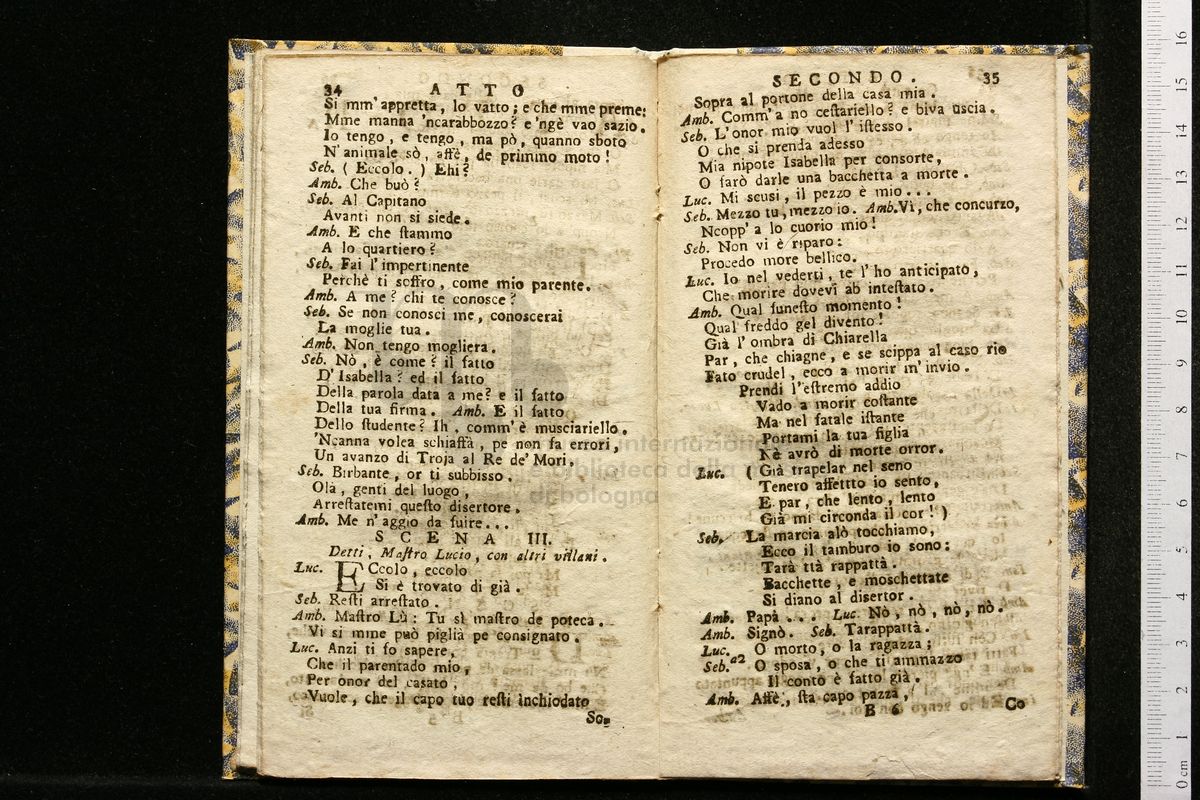 34 ATTO
Si mm'appretta, lo vatto; e che mme preme:
Mme manna 'ncarabbozzo? e 'ngè vao sazio.
Io tengo, e tengo, ma pò, quanno sboto
N'animale sò, affè, de primmo moto!
Seb. ( Eccolo. ) Ehi?
Amb. Che buò?
Seb. Al Capitano
Avanti non si siede.
Amb. E che stammo
A lo quartiero?
Seb. Fai l'impertinente
Perchè ti soffro, come mio parente.
Amb. A me? chi te conosce?
Seb. Se non conosci me, conoscerai
La moglie tua.
Amb. Non tengo mogliera.
Seb. Nò, è come? il fatto
D'Isabella? ed il fatto
Della parola data a me? e il fatto
Della tua firma. Amb. E il fatto
Dello studente? Ih, comm'è musciariello.
'Ncanna volea schiaffà, pe non fa errori,
Un avanzo di Troja al Re de' Mori.
Seb. Birbante, or ti subbisso.
Olà, genti del luogo,
Arrestatemi questo disertore.
Amb. Me n'aggio da fuire...
SCENA III.
Detti, Mastro Lucio, con altri villani.
Luc. ECcolo, eccolo
Si è trovato di già.
Seb. Resti arrestato.
Amb. Mastro Lù: Tu sì mastro de poteca.
Vi si mme può piglià pe consignato.
Luc. Anzi ti fo sapere,
Che il parentado mio,
Per onor del casato,
Vuole, che il capo tuo resti inchiodato
So-
SECONDO. 35
Sopra al portone della casa mia.
Amb. Comm'a no cestariello? e biva uscia.
Seb. L'onor mio vuol l'istesso.
O che si prenda adesso
Mia nipote Isabella per consorte,
O farò darle una bacchetta a morte.
Luc. Mi scusi, il pezzo è mio...
Seb. Mezzo tu, mezzo io. Amb. Vì, che concurzo,
Ncopp'a lo cuorio mio!
Seb. Non vi è riparo:
Procedo more bellico.
Luc. Io nel vederti, te l'ho anticipato,
Che morire dovevi ab intestato.
Amb. Qual funesto momento!
Qual freddo gel divento!
Già l'ombra di Chiarella
Par, che chiagne, e se scippa al caso rio
Fato crudel, ecco a morir m'invio.
Prendi l'estremo addio
Vado a morir costante
Ma nel fatale istante
Portami la tua figlia
Nè avrò di morte orror.
Luc. ( Già trapelar nel seno
Tenero affettto io sento,
E par, che lento, lento
Già mi circonda il cor! )
Seb. La marcia alò tocchiamo,
Ecco il tamburo io sono:
Tarà ttà rappattà.
Bacchette, e moschettate
Si diano al disertor.
Amb. Papà... Luc. Nò, nò, nò, nò.
Amb. Signò. Seb. Tarappattà.
Luc. O morto, o la ragazza;
Seb. a2 O sposa, o che ti ammazzo
Il conto è fatto già.
Amb. Affè, sta capo pazza,
B 6 Co